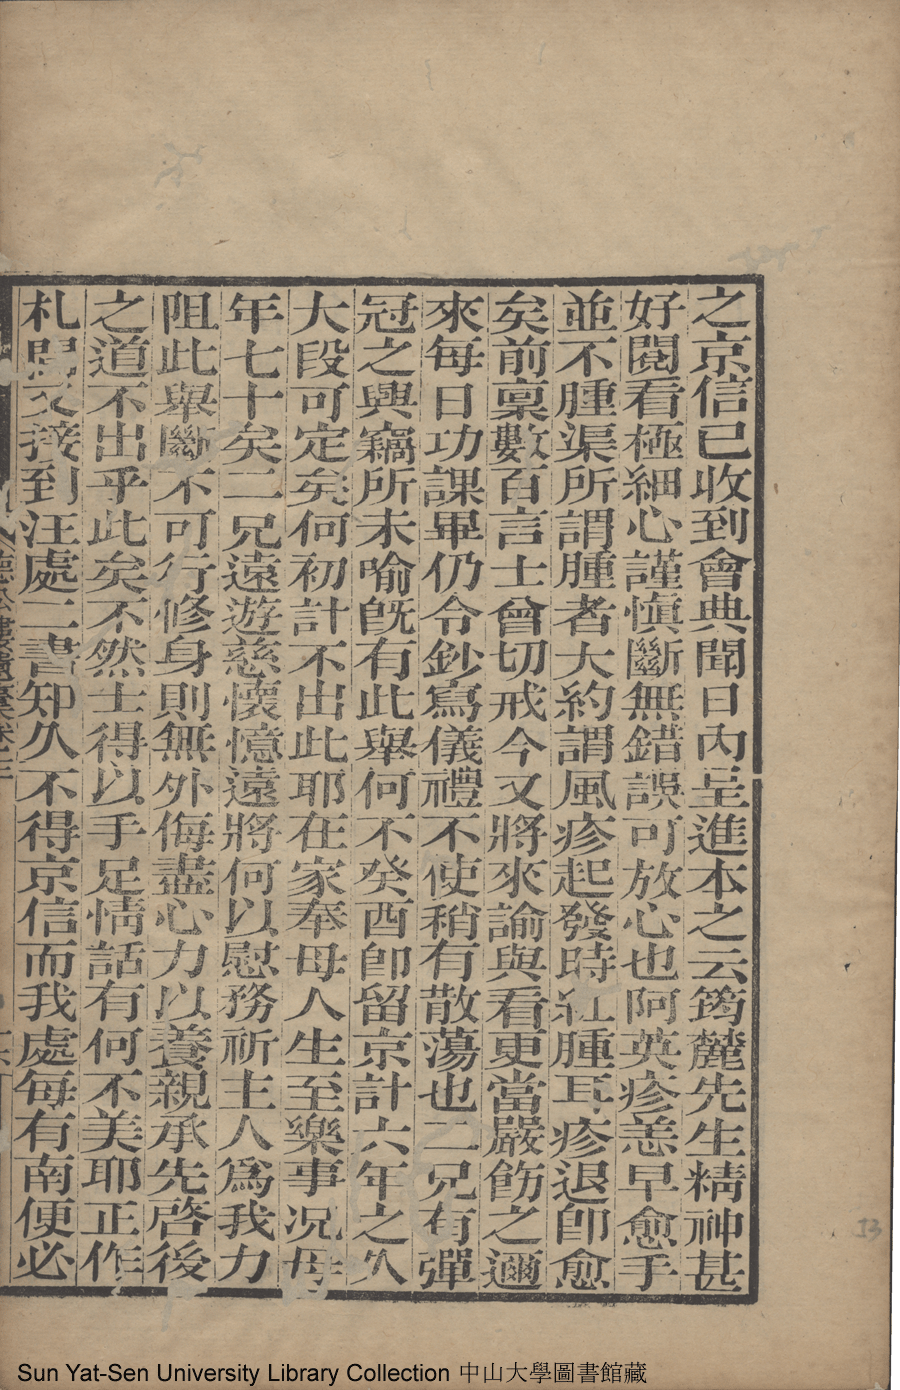 之京信已收到會典聞日內呈進本之云筠麓先生精神甚
好閱看極細心謹愼斷無錯誤可放心也阿英疹恙早愈手
並不腫渠所謂腫者大約謂風疹起發時紅腫耳疹退卽愈
矣前稟數百言士曾切戒今又將來諭與看更當嚴飭之邇
來每日功課畢仍令鈔寫儀禮不使稍有散蕩也二兄有彈
冠之興竊所未喻旣有此舉何不癸酉卽留京計六年之久
大段可定矣何初計不出此耶在家奉母人生至樂事况母
年七十矣二兄遠遊慈懷憶遠將何以慰務祈主人爲我力
阻此舉斷不可行修身則無外侮盡心力以養親承先啓後
之道不出乎此矣不然士得以手足情話有何不美耶正作
札間又接到汪處二書知久不得京信而我處每有南便必
Sun Yat-Sen University Library Collection 中山大學圖書館藏